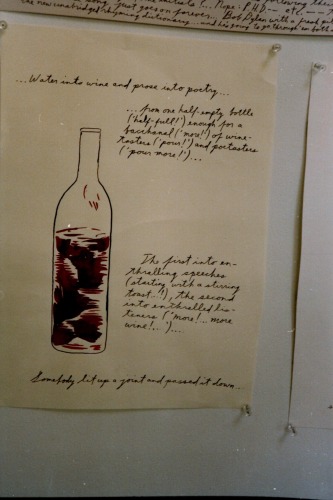 just goes on forever... Bob Dylan with a fresh
the new unabridged rhyming dictionary... and he's going to go through it both
...Water into wine and prose into poetry...
...from one half-empty bottle
('half-full!') enough for a
bacchanal ('more!') of wine-
tasters ('pour!') and portasters
('pour more!')...
The first into en-
thralling speeches
(starting with a stirring
toast...!), the second
into enthralled lis-
teners ('more!... more
wine!...')...
Somebody lit up a joint and passed it down...